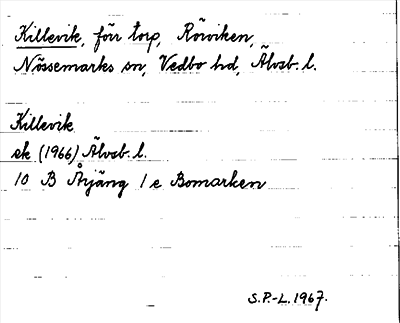 Killevik, förr torp, Röviken,
Nössemarks sn, Vedbo hd, Älvsb. l.
Killevik
ek (1966) Älvsb. l.
10 B Årjäng 1 e Bomarken
S.P.-L. 1967.